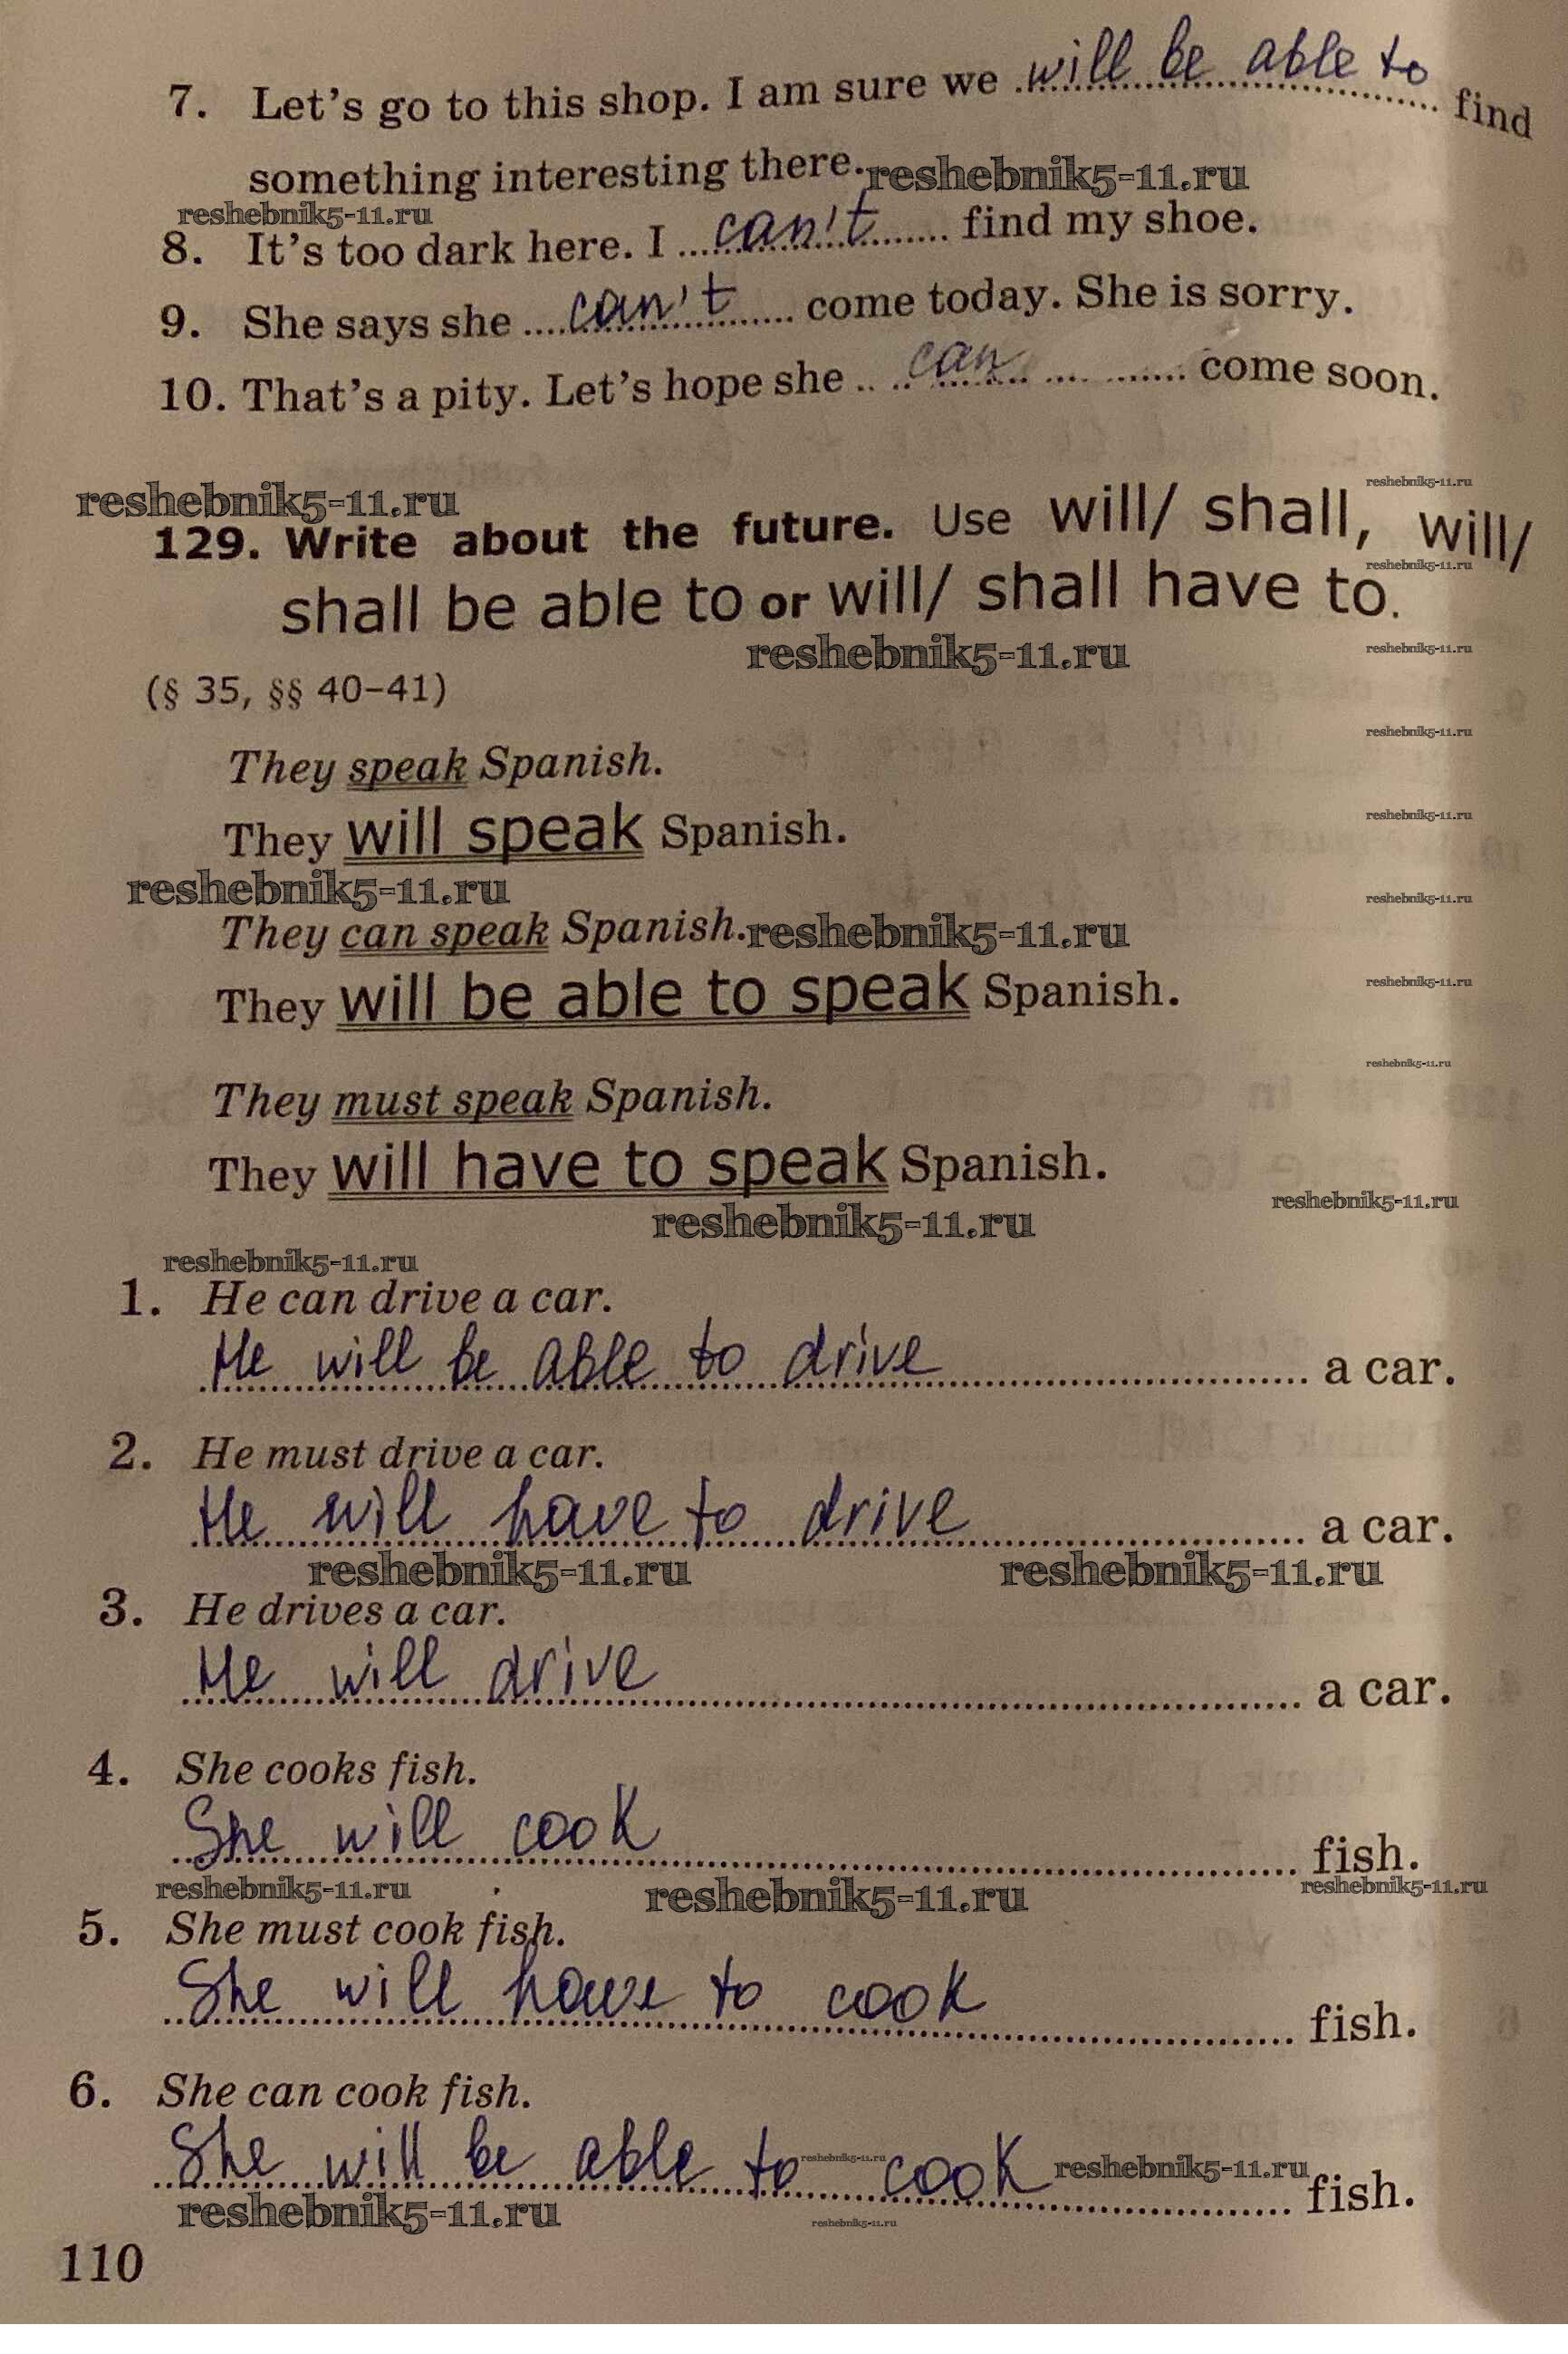 7. Let's go to this shop. I am sure we will be able to find
something interesting there. reshebnik5-11.ru
reshebnik5-11.ru
8. It's too dark here. I can't find my shoe.
9. She says she can't come today. She is sorry.
10. That's a pity. Let's hope she can come soon.
reshebnik5-11.ru
reshebnik5-11.ru
129. Write about the future. Use will/ shall, will/
reshebnik5-11.ru
shall be able to or will/ shall have to.
reshebnik5-11.ru
reshebnik5-11.ru
(§ 35, §§ 40–41)
reshebnik5-11.ru
They speak Spanish.
reshebnik5-11.ru
They will speak Spanish.
reshebnik5-11.ru
reshebnik5-11.ru
They can speak Spanish. reshebnik5-11.ru
reshebnik5-11.ru
They will be able to speak Spanish.
reshebnik5-11.ru
They must speak Spanish.
They will have to speak Spanish.
reshebnik5-11.ru
reshebnik5-11.ru
reshebnik5-11.ru
1. He can drive a car.
He will be able to drive a car.
2. He must drive a car.
He will have to drive a car.
reshebnik5-11.ru reshebnik5-11.ru
3. He drives a car.
He will drive a car.
4. She cooks fish.
She will cook fish.
reshebnik5-11.ru reshebnik5-11.ru reshebnik5-11.ru
5. She must cook fish.
She will have to cook fish.
6. She can cook fish.
reshebnik5-11.ru reshebnik5-11.ru
She will be able to cook fish.
reshebnik5-11.ru reshebnik5-11.ru
110